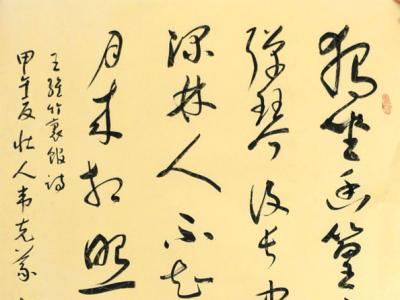 独坐幽篁
弹琴复长
深林人不知
月来相照
王维竹裏馆诗
甲午夏壮人韦克